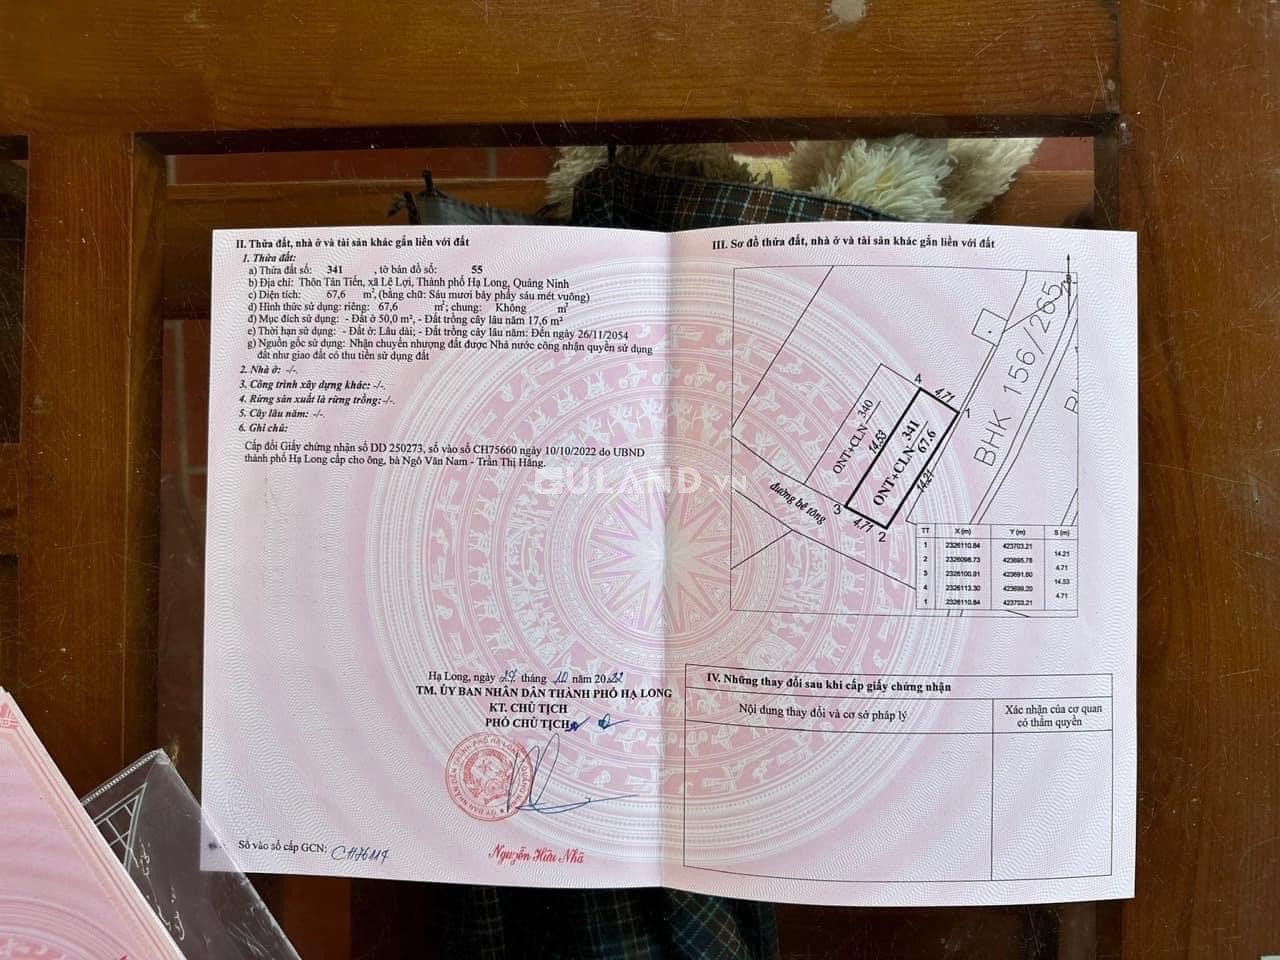 II. Thửa đất, nhà ở và tài sản khác gắn liền với đất
1. Thửa đất:
a) Thửa đất số: 341 , tờ bản đồ số: 55
b) Địa chỉ: Thôn Tân Tiến, xã Lê Lợi, Thành phố Hạ Long, Quảng Ninh
c) Diện tích: 67,6 m², (bằng chữ: Sáu mươi bảy phẩy sáu mét vuông)
d) Hình thức sử dụng: riêng: 67,6 m²; chung: Không m²
đ) Mục đích sử dụng: - Đất ở 50,0 m², - Đất trồng cây lâu năm 17,6 m²
e) Thời hạn sử dụng: - Đất ở: Lâu dài; - Đất trồng cây lâu năm: Đến ngày 26/11/2054
g) Nguồn gốc sử dụng: Nhận chuyển nhượng đất được Nhà nước công nhận quyền sử dụng
đất như giao đất có thu tiền sử dụng đất
2. Nhà ở: -/-.
3. Công trình xây dựng khác: -/-.
4. Rừng sản xuất là rừng trồng: -/-.
5. Cây lâu năm: -/-.
6. Ghi chú:
Cấp đổi Giấy chứng nhận số DD 250273, số vào sổ CH75660 ngày 10/10/2022 do UBND
thành phố Hạ Long cấp cho ông, bà Ngô Văn Nam - Trần Thị Hằng.
Hạ Long, ngày 27 tháng 10 năm 2022
TM. ỦY BAN NHÂN DÂN THÀNH PHỐ HẠ LONG
KT. CHỦ TỊCH
PHÓ CHỦ TỊCH
Nguyễn Hữu Nhã
Số vào sổ cấp GCN: CH76117
III. Sơ đồ thửa đất, nhà ở và tài sản khác gắn liền với đất
BHK 156/265
4
4.71
1
ONT+CLN 340
14.53
ONT+CLN 341
67.6
14.21
3
4.71
2
đường bê tông
TT X (m) Y (m) S (m)
1 2326110.84 423703.21
14.21
2 2326098.73 423695.78
4.71
3 2326100.91 423691.60
14.53
4 2326113.30 423699.20
4.71
1 2326110.84 423703.21
IV. Những thay đổi sau khi cấp giấy chứng nhận
Nội dung thay đổi và cơ sở pháp lý
Xác nhận của cơ quan
có thẩm quyền
GULAND.VN